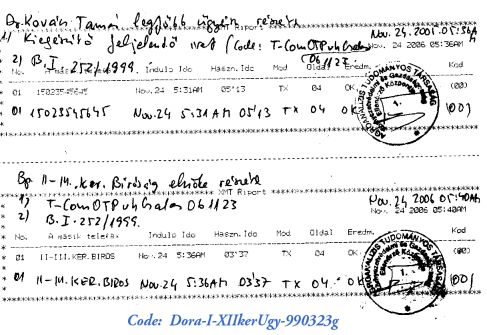 Dr. Kovács Tamás legfőbb ügyész részére
XMT Report
1) Kiegészítő feljelentő irat (Code: T-ComOTPuhGalas
Nov. 24. 2006 05:36AM
Nov. 24 2006 05:36AM
061127
2) B.I. 252/1999.
No. A másik telefax Indulo Ido Haszn. Ido Mod Oldal Eredm. Kod
01 15023545645 Nov.24 5:31AM 05'13 TX 04 OK (00)
01 15023545645 Nov.24 5:31AM 05'13 TX 04 OK (00)
AGROANALIZIS TUDOMÁNYOS TÁRSASÁG
1.
Bp. II-III. Ker. Bíróság elnöke részére
XMT Report
1) T-ComOTPuhGalas 061123
Nov. 24 2006 05:40AM
2) B.I. 252/1999.
Nov. 24 2006 05:40AM
No. A másik telefax Indulo Ido Haszn. Ido Mod Oldal Eredm. Kod
01 II-III.KER.BIROS Nov.24 5:36AM 03'37 TX 04 OK (00)
01 II-III.KER.BIROS Nov.24 5:36AM 03'37 TX 04 OK (00)
AGROANALIZIS TUDOMÁNYOS TÁRSASÁG
1.
Code: Dora-I-XIIkerUgy-990323g